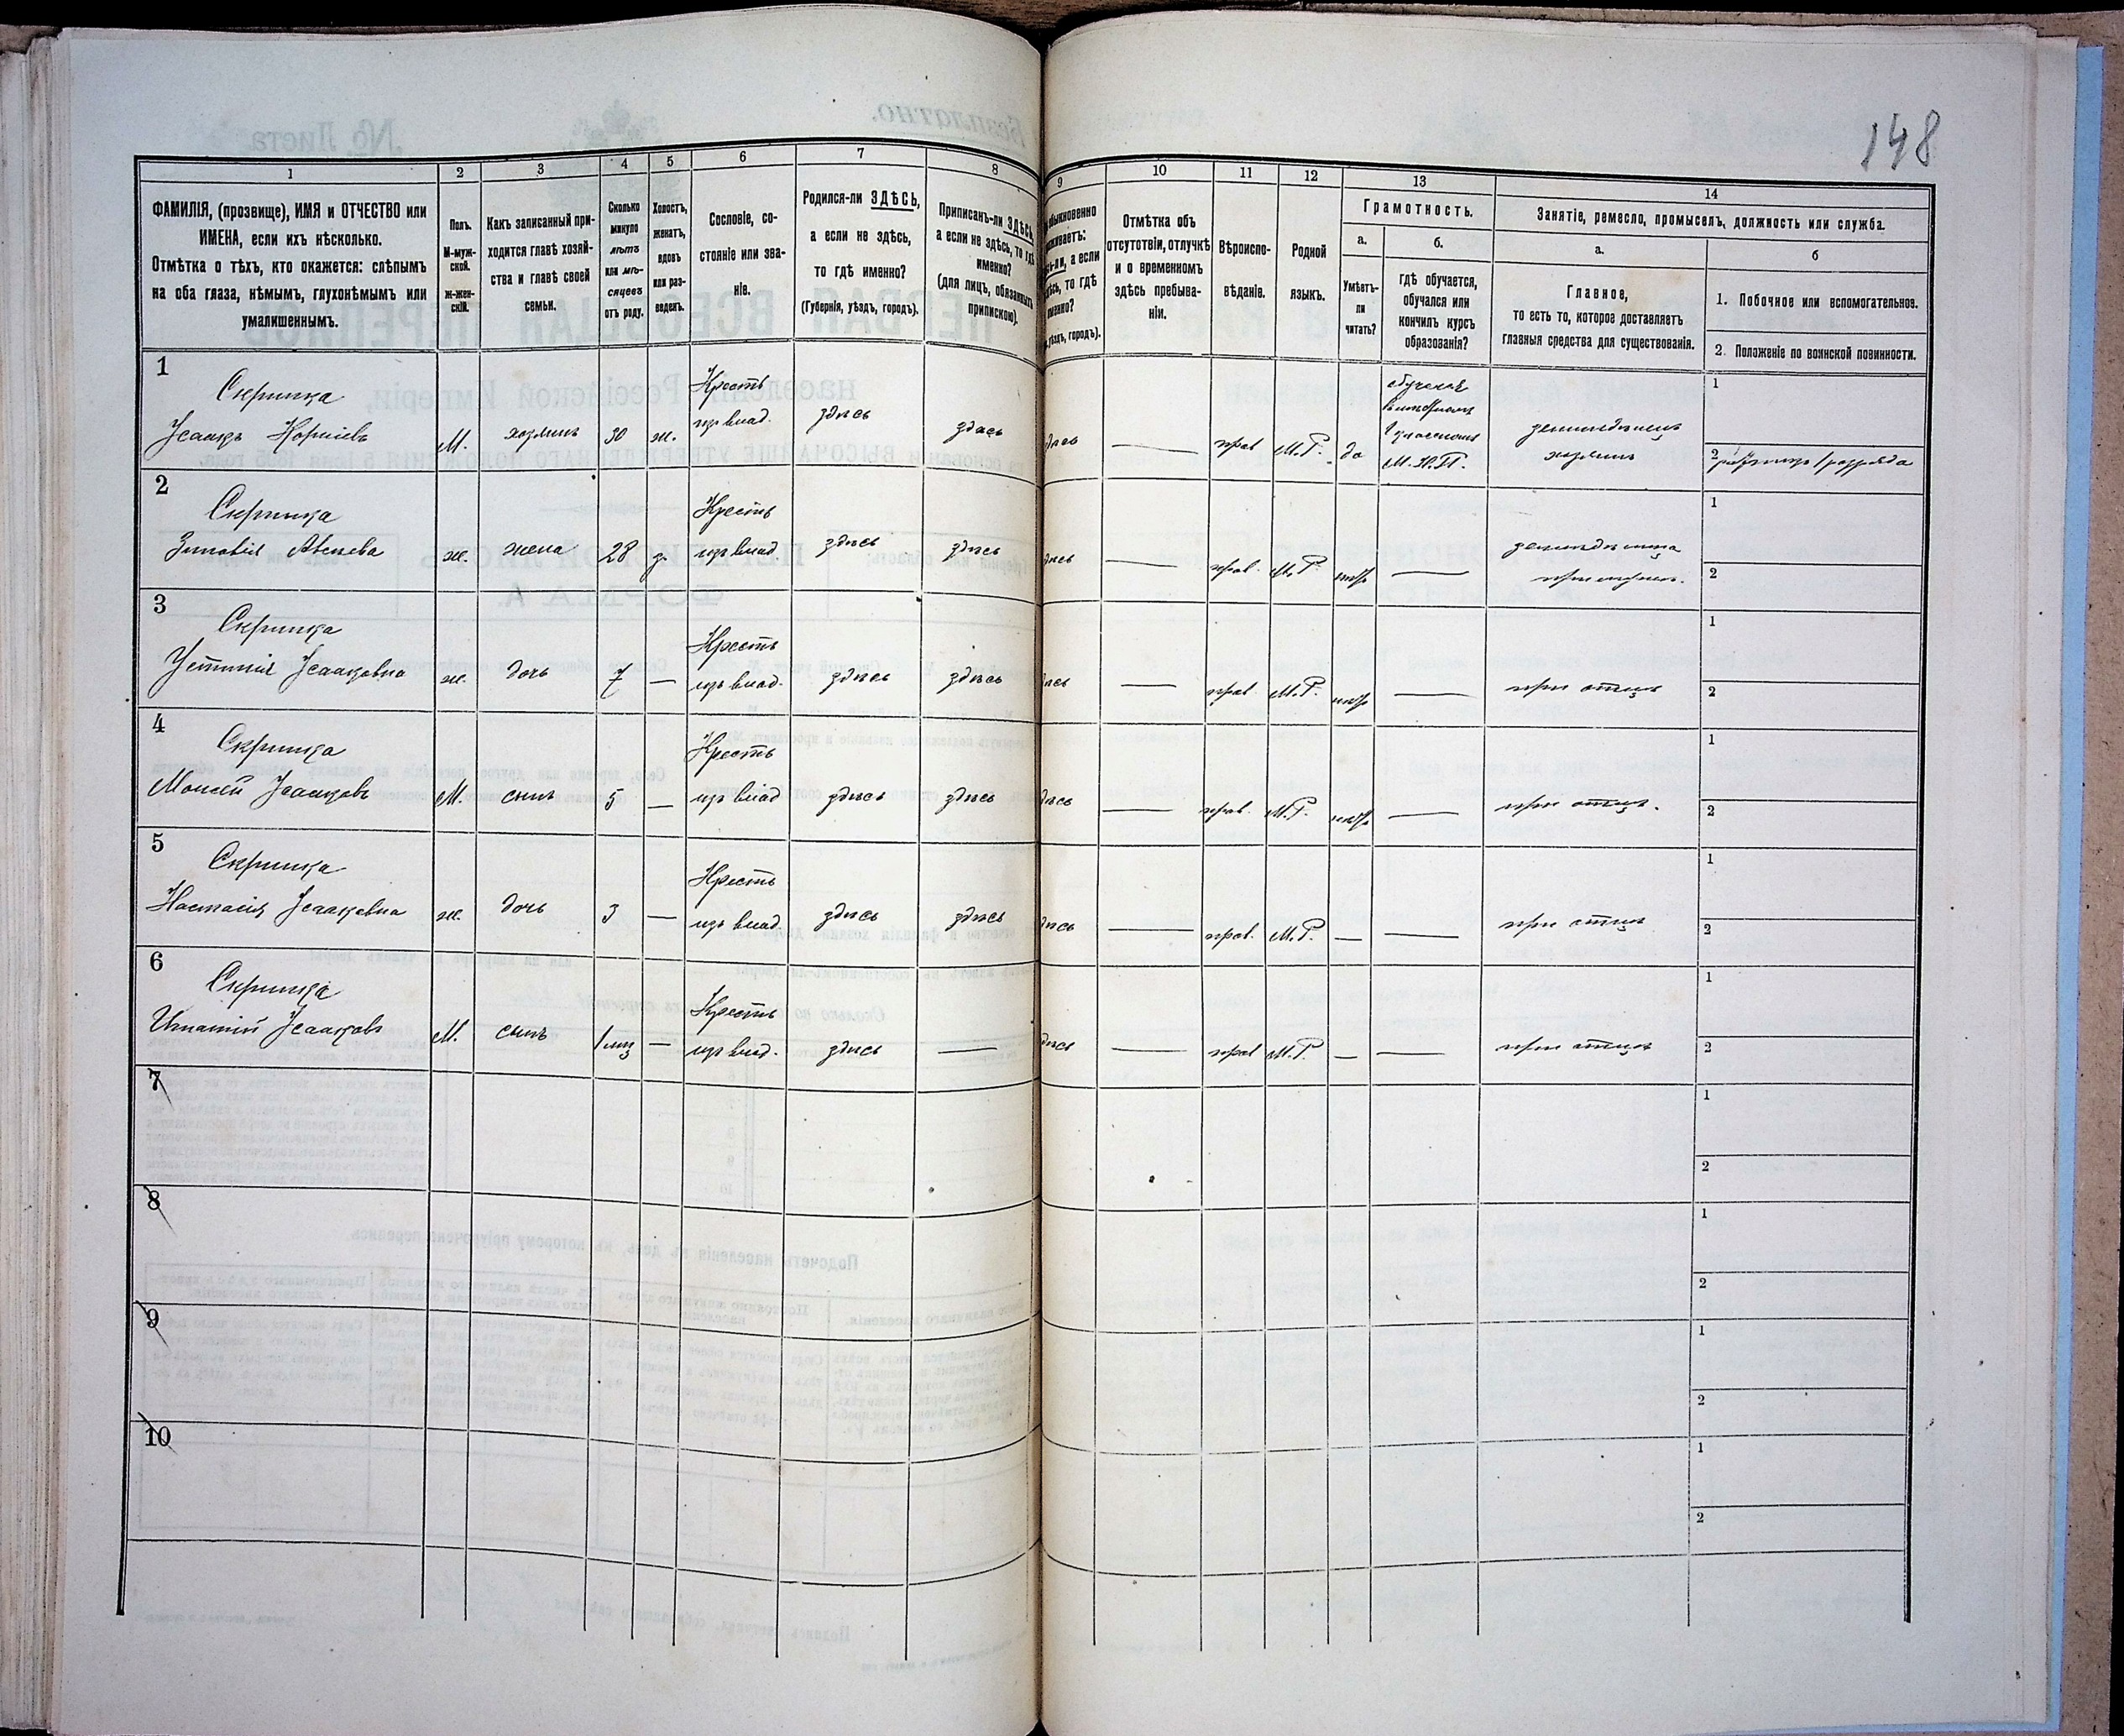 148
1 2 3 4 5 6 7 8 9 10 11 12 13 14
ФАМИЛІЯ, (прозвище), ИМЯ и ОТЧЕСТВО или
ИМЕНА, если ихъ нѣсколько.
Отмѣтка о тѣхъ, кто окажется: слѣпымъ
на оба глаза, нѣмымъ, глухонѣмымъ или
умалишеннымъ.
Полъ.
М-муж-
ской.
Ж-жен-
скій.
Какъ записанный при-
ходится главѣ хозяй-
ства и главѣ своей
семьи.
Сколько
минуло
лѣтъ
или мѣ-
сяцевъ
отъ роду.
Холостъ,
женатъ,
вдовъ
или раз-
веденъ.
Сословіе, со-
стояніе или зва-
ніе.
Родился-ли ЗДѢСЬ,
а если не здѣсь,
то гдѣ именно?
(Губернія, уѣздъ, городъ).
Приписанъ-ли ЗДѢСЬ,
а если не здѣсь, то гдѣ
именно?
(для лицъ, обязанныхъ
припискою).
обыкновенно
а если
то гдѣ
городъ).
Отмѣтка объ
отсутствіи, отлучкѣ
и о временномъ
здѣсь пребыва-
ніи.
Вѣроиспо-
вѣданіе.
Родной
языкъ.
Грамотность.
а.
Умѣетъ-
ли
читать?
б.
гдѣ обучается,
обучался или
кончилъ курсъ
образованія?
Занятіе, ремесло, промыселъ, должность или служба.
а.
Главное,
то есть то, которое доставляетъ
главныя средства для существованія.
б
1. Побочное или вспомогательное.
2. Положеніе по воинской повинности.
1
Скрипка
Исаакъ
М. хозяинъ 30 ж.
Крестъ
изъ влад.
здѣсь здѣсь
прав М.Р. да
М.Н.П.
земледѣлецъ
хозяинъ
1
2 ратникъ 1 разряда
2
Скрипка
Зиновія
ж. жена 28 з.
Крестъ
изъ влад
здѣсь здѣсь
прав. М.Р. нѣтъ
при мужѣ.
1
2
3
Скрипка
Устинія Исааковна
ж. дочь 7 —
Крестъ
изъ влад.
здѣсь здѣсь
— прав М.Р. нѣтъ — при отцѣ
1
2
4
Скрипка
Моисей Исааковъ
М. сынъ 5 —
Крестъ
изъ влад
здѣсь здѣсь
— прав. М.Р. нѣтъ — при отцѣ.
1
2
5
Скрипка
Настасія Исааковна
ж. дочь 3 —
Крестъ
изъ влад.
здѣсь здѣсь
— прав. М.Р. — — при отцѣ
1
2
6
Скрипка
Игнатій Исааковъ
М. сынъ —
Крестъ
изъ влад.
здѣсь —
— прав М.Р. — — при отцѣ
1
2
7
1
2
8
1
2
9
1
2
10
1
2